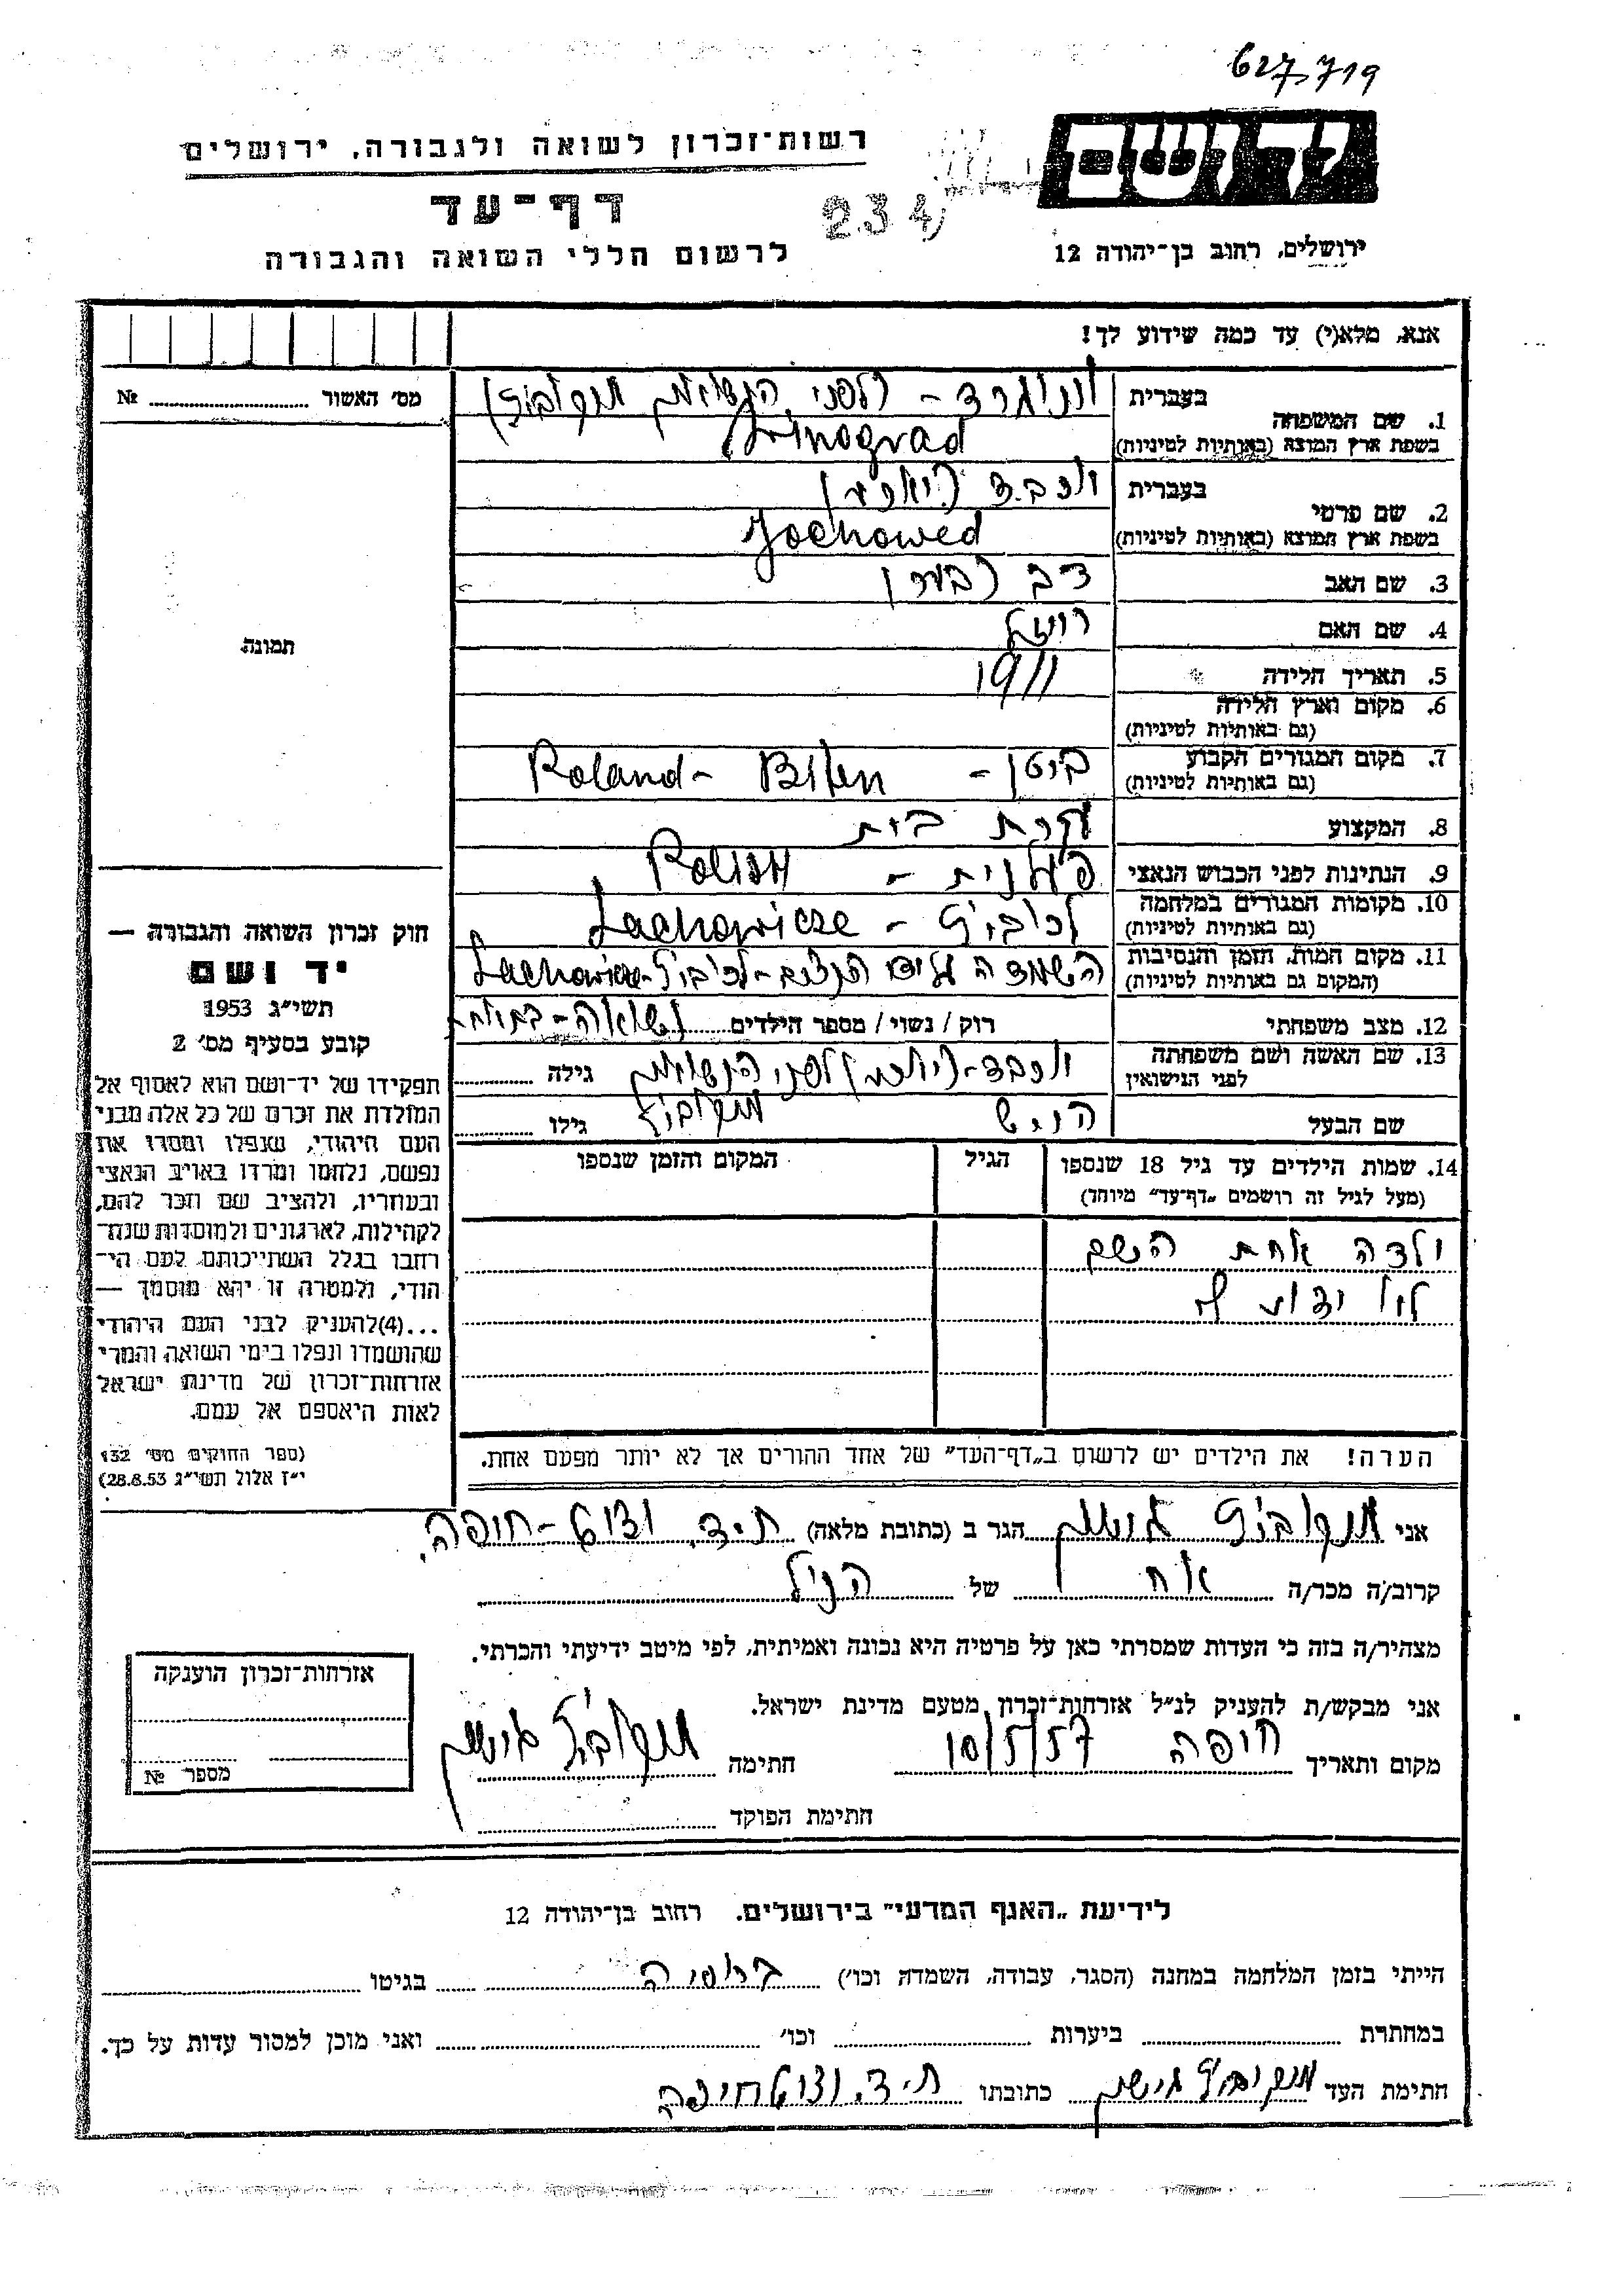 627,719
רשות־זכרון לשואה ולגבורה, ירושלים
יד ושם
דף־עד
234
לרשום חללי השואה והגבורה
ירושלים, רחוב בן־יהודה 12
אנא, מלא(י) עד כמה שידוע לך!
מס׳ האשור № ..........
1. שם המשפחה בעברית וינוגרד – (לפני הנשואין
בשפת ארץ המוצא (באותיות לטיניות) Winograd
2. שם פרטי בעברית יוכבד
בשפת ארץ המוצא (באותיות לטיניות) Jochowed
3. שם האב דב
4. שם האם רושל
5. תאריך הלידה 1911
6. מקום וארץ הלידה
(גם באותיות לטיניות)
7. מקום המגורים הקבוע ביטן – Biten -Poland
(גם באותיות לטיניות)
8. המקצוע עקרת בית
9. הנתינות לפני הכבוש הנאצי פולנית – Polish
10. מקומות המגורים במלחמה Lachowicze –
(גם באותיות לטיניות)
11. מקום המות, הזמן והנסיבות השמדה ע״י הנצים – Lachowicze
(המקום גם באותיות לטיניות)
12. מצב משפחתי רוק / נשוי / מספר הילדים נשואה –
13. שם האשה ושם משפחתה יוכבד – לפני הנשואין גילה ..........
לפני הנישואין
שם הבעל גילו ..........
תמונה
14. שמות הילדים עד גיל 18 שנספו הגיל המקום והזמן שנספו
(מעל לגיל זה רושמים „דף־עד״ מיוחד)
ילדה אחת השם
לא ידוע לי
הערה! את הילדים יש לרשום ב„דף־העד״ של אחד ההורים אך לא יותר מפעם אחת.
חוק זכרון השואה והגבורה —
יד ושם
תשי״ג 1953
קובע בסעיף מס׳ 2
תפקידו של יד־ושם הוא לאסוף אל
המולדת את זכרם של כל אלה מבני
העם היהודי, שנפלו ומסרו את
נפשם, נלחמו ומרדו באויב הנאצי
ובעוזריו, ולהציב שם וזכר להם,
לקהילות, לארגונים ולמוסדות שנח־
רבו בגלל השתייכותם לעם הי־
הודי, ולמטרה זו יהא מוסמך —
...(4)להעניק לבני העם היהודי
שהושמדו ונפלו בימי השואה והמרי
אזרחות־זכרון של מדינת ישראל
לאות היאספם אל עמם.
(ספר החוקים מס׳ 132
י״ז אלול תשי״ג 28.8.53)
אני הגר ב (כתובת מלאה) חיפה
קרוב/ה מכר/ה אח של הנ״ל
מצהיר/ה בזה כי העדות שמסרתי כאן על פרטיה היא נכונה ואמיתית, לפי מיטב ידיעתי והכרתי.
אני מבקש/ת להעניק לנ״ל אזרחות־זכרון מטעם מדינת ישראל.
מקום ותאריך חיפה 10/5/57 חתימה
חתימת הפוקד ..........
אזרחות־זכרון הוענקה
מספר №
לידיעת „האגף המדעי״ בירושלים. רחוב בן־יהודה 12
הייתי בזמן המלחמה במחנה (הסגר, עבודה, השמדה וכו׳) ברוסיה בגיטו ..........
במחתרת .......... ביערות .......... וכו׳ .......... ואני מוכן למסור עדות על כך.
חתימת העד כתובתו חיפה